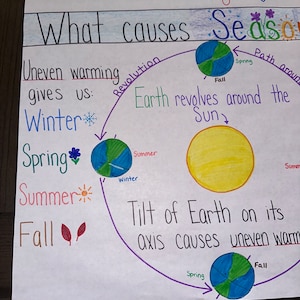 What causes Seaso
Uneven warming
gives us:
Winter
Spring
Summer
Fall
Revolution
Path aroun
Spring
Fall
Earth revolves around the
Sun
Summer
Winter
Summ
Tilt of Earth on its
axis causes uneven warm
Spring
Fall